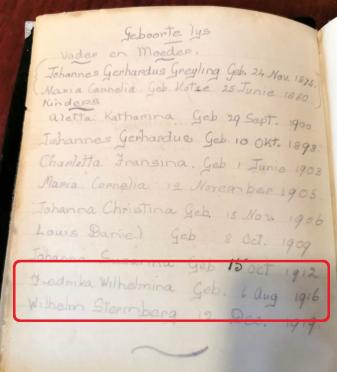 Geboorte lys
Vader en Moeder.
Johannes Gerhardus Greyling Geb. 24 Nov. 1875.
Maria Cornelia Geb. Kotze 25 Junie 1880.
Kinders
Aletta Katharina Geb 29 Sept. 1900
Johannes Gerhardus Geb 10 Okt.
Charlotta Fransina. Geb 1 Junie 1903
Maria Cornelia 12 November 1905
Johanna Christina Geb. 15 Nov 1906
Louis Daniel Geb 8 Oct. 1909
Johanna Susanna Geb 15 Oct 1912
Fredrika Wilhelmina Geb. 6 Aug 1916
Wilhelm Sternberg 12 Dec. 1919.